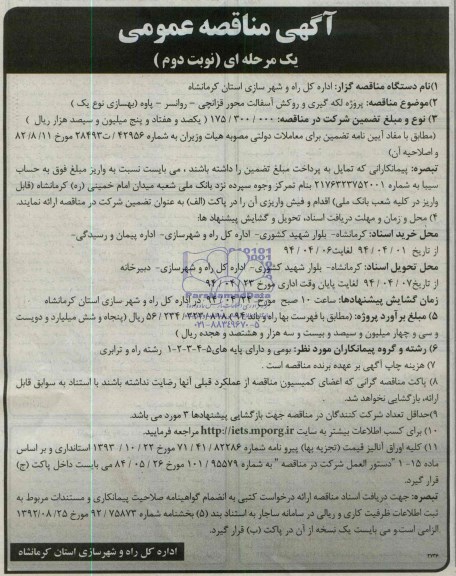 آگهی مناقصه عمومی
یک مرحله ای (نوبت دوم)
۱)نام دستگاه مناقصه گزار: اداره کل راه و شهر سازی استان کرمانشاه
۲)موضوع مناقصه: پروژه لکه گیری و روکش آسفالت محور قزانچی - روانسر - پاوه (بهسازی نوع یک )
۳) نوع و مبلغ تضمین شرکت در مناقصه: ۱۷۵/۳۰۰/۰۰۰ ( یکصد و هفتاد و پنج میلیون و سیصد هزار ریال )
(مطابق با مفاد آیین نامه تضمین برای معاملات دولتی مصوبه هیات وزیران به شماره ۴۲۹۵۶ / ت۲۸۴۹۳ مورخ ۸۲/۸/۱۱
و اصلاحیه آن)
تبصره: پیمانکارانی که تمایل به پرداخت مبلغ تضمین را داشته باشند ، می بایست نسبت به واریز مبلغ فوق به حساب
سیبا به شماره ۲۱۷۶۳۲۳۷۵۲۰۰۱ بنام تمرکز وجوه سپرده نزد بانک ملی شعبه میدان امام خمینی (ره) کرمانشاه (قابل
واریز در کلیه شعب بانک ملی) اقدام و فیش واریزی آن را در پاکت (الف) به عنوان تضمین شرکت در مناقصه ارائه نمایند.
۴) محل و زمان و مهلت دریافت اسناد، تحویل و گشایش پیشنهاد ها:
محل خرید اسناد: کرمانشاه- بلوار شهید کشوری- اداره کل راه و شهرسازی- اداره پیمان و رسیدگی-
از تاریخ ۹۴/۰۴/۰۱ لغایت ۹۴/۰۴/۰۶
محل تحویل اسناد: کرمانشاه- بلوار شهید کشوری- اداره کل راه و شهرسازی- دبیرخانه
از تاریخ ۹۴/۰۴/۰۷ لغایت پایان وقت اداری مورخ
زمان گشایش پیشنهادها: ساعت ۱۰ صبح مورخ در اداره کل راه و شهر سازی استان کرمانشاه
۵) مبلغ برآورد پروژه: (مطابق با فهرست بها راه و باند ۹۴) ۵۶/۲۳۴/۳۲۳/۸۱۸ ریال (پنجاه و شش میلیارد و دویست
و سی و چهار میلیون و سیصد و بیست و سه هزار و هشتصد و هجده ریال )
۶) رشته و گروه پیمانکاران مورد نظر: بومی و دارای پایه های ۵-۴-۳-۲-۱ رشته راه و ترابری
۷) هزینه چاپ آگهی بر عهده برنده مناقصه است .
۸) پاکت مناقصه گرانی که اعضای کمیسیون مناقصه از عملکرد قبلی آنها رضایت نداشته باشند با استناد به سوابق قابل
ارائه، بازگشایی نخواهد شد.
۹)حداقل تعداد شرکت کنندگان در مناقصه جهت بازگشایی پیشنهادها ۳ مورد می باشد.
۱۰) برای کسب اطلاعات بیشتر به سایت http://iets.mporg.ir مراجعه فرمایید.
۱۱) کلیه اوراق آنالیز قیمت (تجزیه بها) پیرو نامه شماره ۴۱/۸۲۲۸۶ / ۷۱ مورخ ۲۲/۱۰/۱۳۹۳ استانداری و بر اساس
ماده ۱۵-۱ "دستور العمل شرکت در مناقصه " به شماره ۱۰۱/۹۵۵۷۹ مورخ ۸۴/۰۵/۲۶ می بایست داخل پاکت (ج)
قرار گیرد.
تبصره: جهت دریافت اسناد مناقصه ارائه درخواست کتبی به انضمام گواهینامه صلاحیت پیمانکاری و مستندات مربوط به
ثبت اطلاعات ظرفیت کاری و ریالی در سامانه ساجار به استناد بند (۵) بخشنامه شماره ۹۲/۷۵۸۷۳ مورخ ۱۳۹۲/۰۸/۲۵
الزامی است و می بایست یک نسخه از آن در پاکت (ب) قرار گیرد.
اداره کل راه و شهرسازی استان کرمانشاه